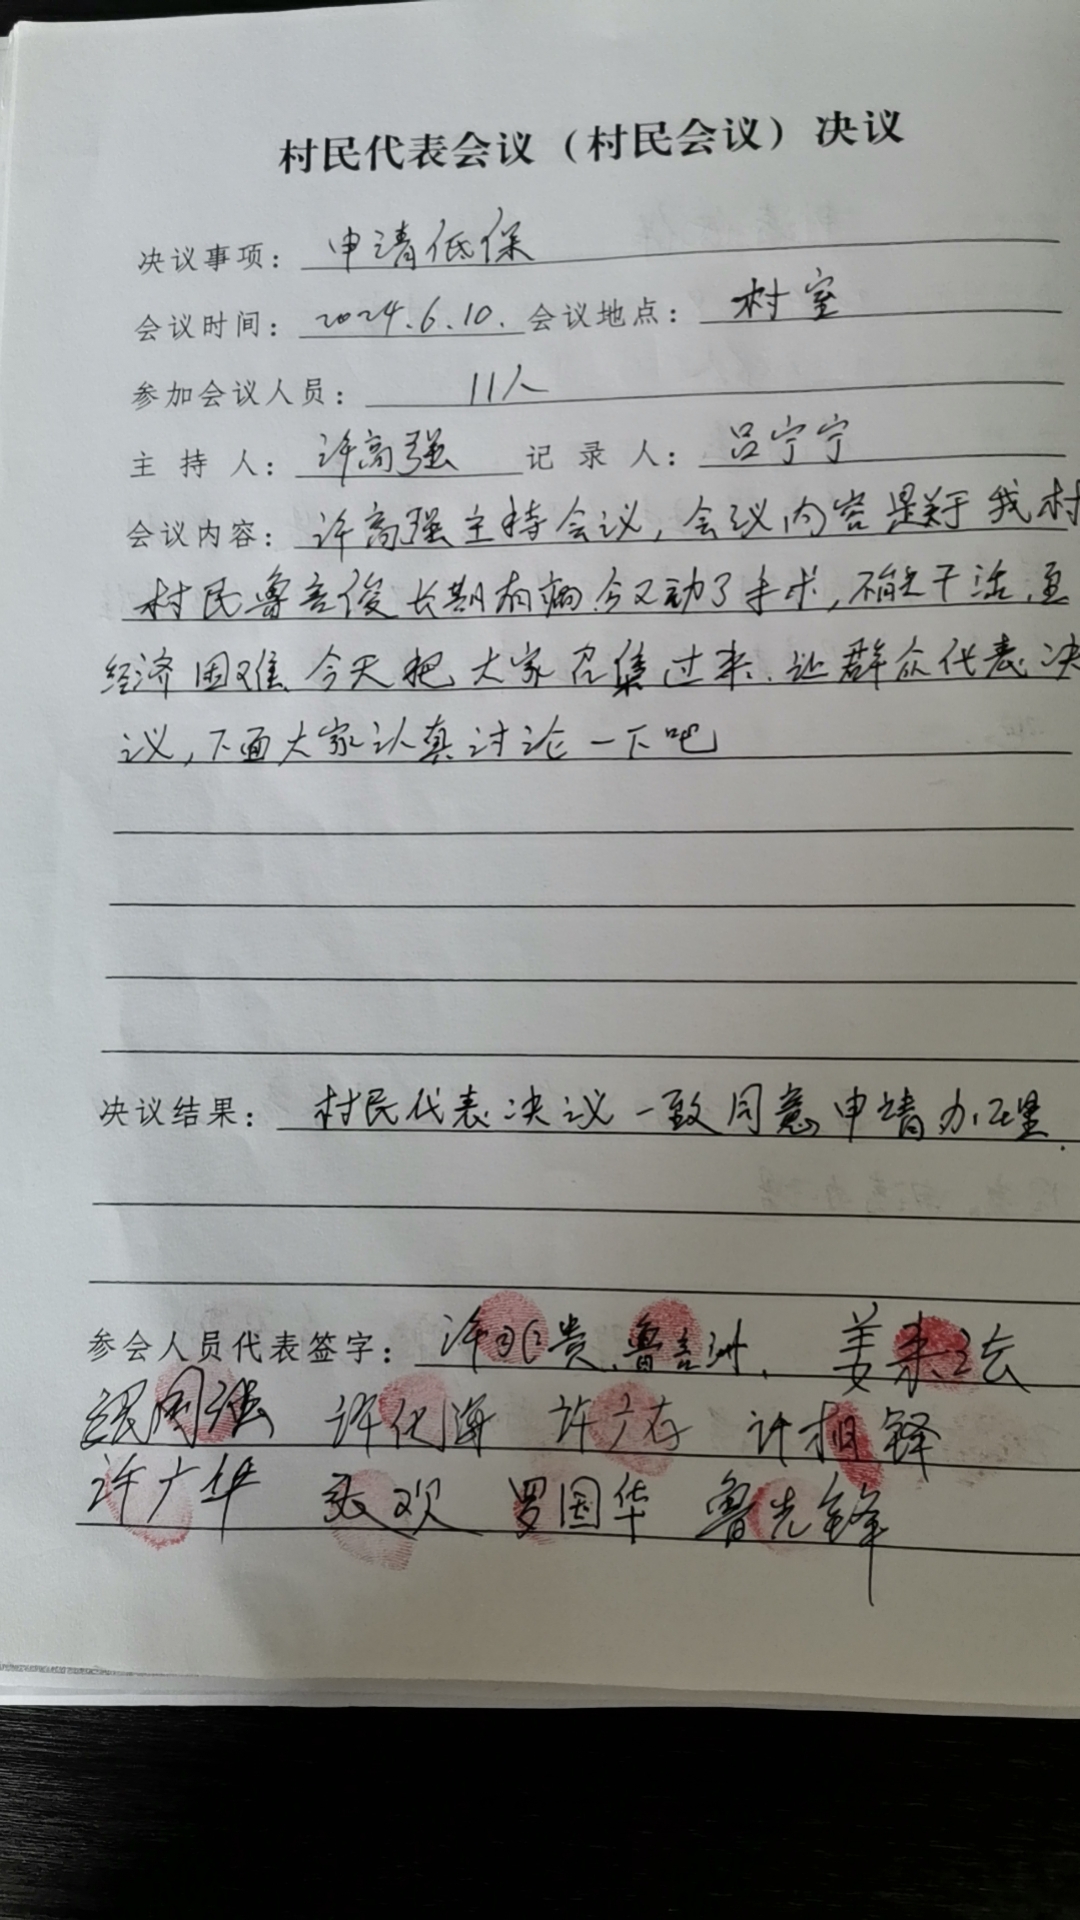 村民代表会议（村民会议）决议
决议事项：申请低保
会议时间：2024.6.10.会议地点：村室
参加会议人员：11人
主持人：许高强 记录人：吕宁宁
会议内容：许高强主持会议，会议内容是关于我村
村民鲁言俊长期有病今又动了手术，不能干活，
经济困难 今天把大家召集过来、让群众代表决
议，下面大家认真讨论一下吧
决议结果：村民代表决议一致同意申请办理.
参会人员代表签字：许 贵、鲁言洲、姜来
国强 许化海 许广存 许相铎
许广华 张欢 罗国华 鲁先锋